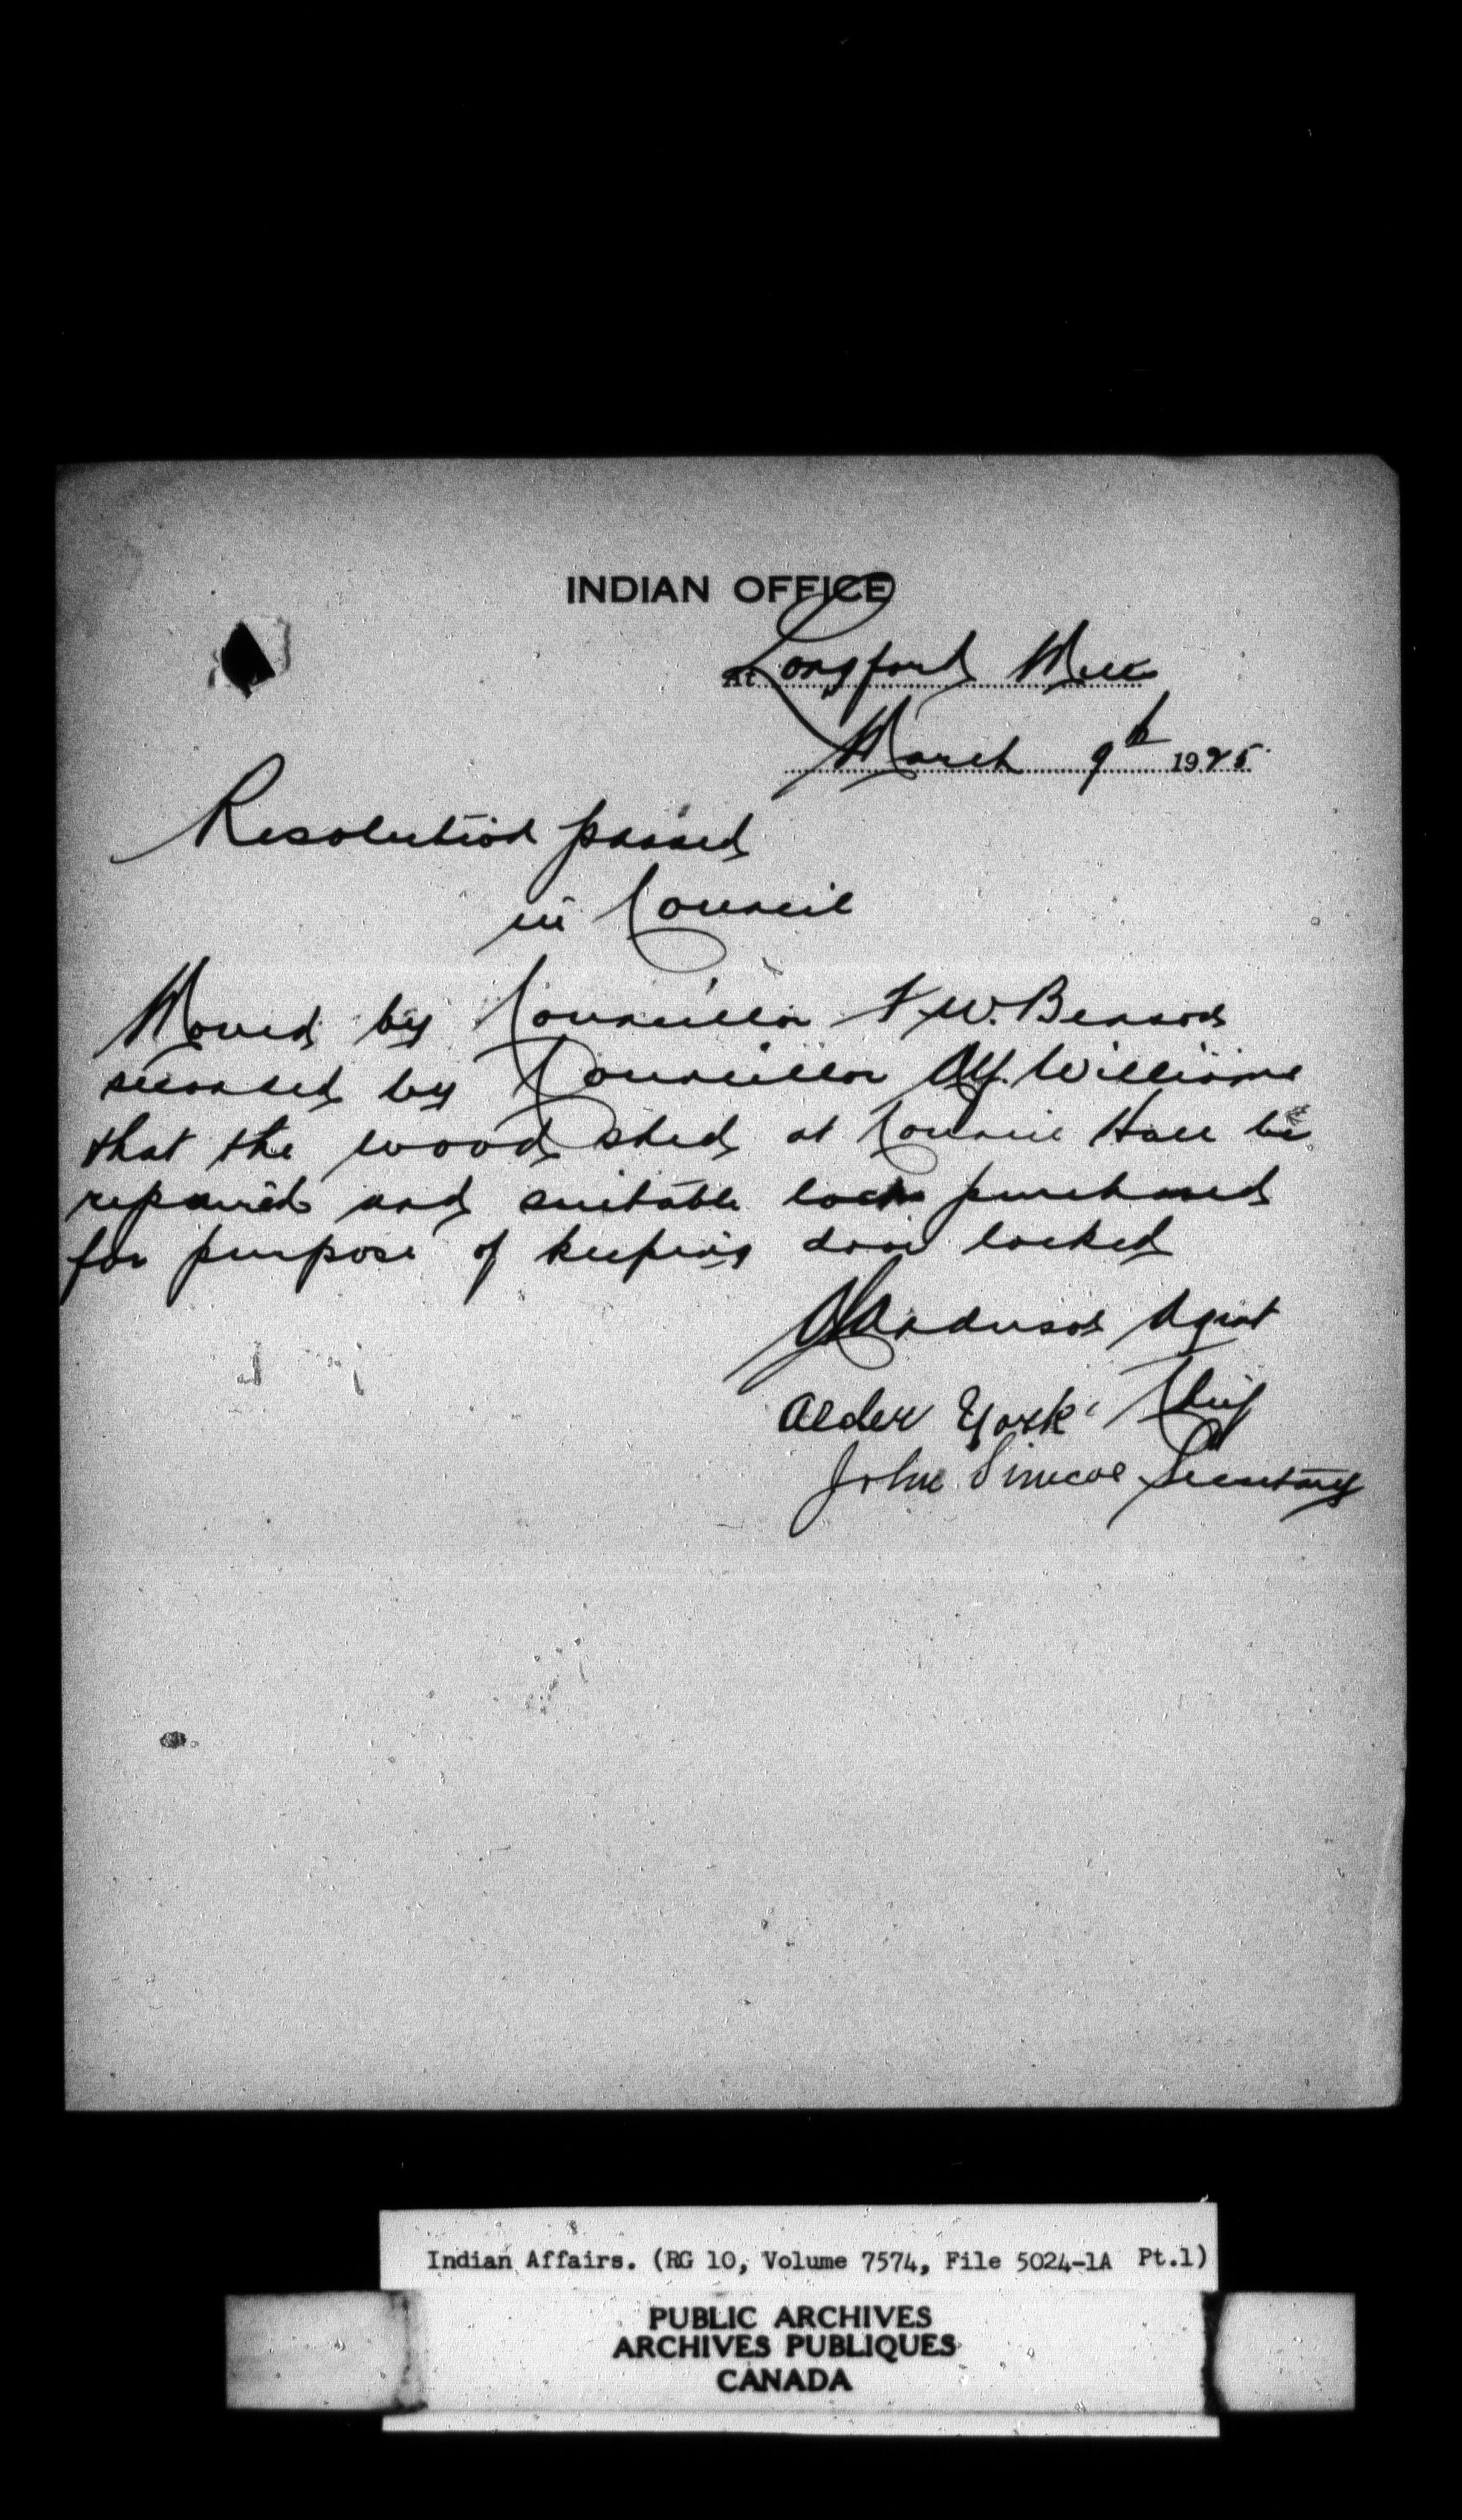 INDIAN OFFICE
At Longford Mills
March 9th 1925
Resolution passed
in Council
Moved by Councillor F.W. Benson
seconded by Councillor Alf. Williams
that the wood shed at Council Hall be
repaired and suitable lock purchased
for purpose of keeping door locked
Anderson Agent
Alder York Chief
John Simcoe Secretary
Indian Affairs. (RG 10, Volume 7574, File 5024-1A Pt.1)
PUBLIC ARCHIVES
ARCHIVES PUBLIQUES
CANADA